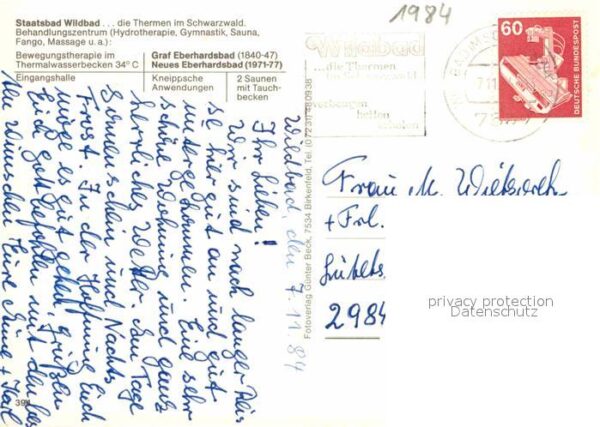 Staatsbad Wildbad ... die Thermen im Schwarzwald.
Behandlungszentrum (Hydrotherapie, Gymnastik, Sauna,
Fango, Massage u.a.):
Bewegungstherapie im
Thermalwasserbecken 34° C
Graf Eberhardsbad (1840-47)
Neues Eberhardsbad (1971-77)
Eingangshalle
Kneippsche
Anwendungen
2 Saunen
mit Tauch-
becken
Wildbad, den 7.11.84
Ihr Lieben!
Wir sind nach langer Reise
hier gut an und gut
untergekommen. Eine sehr
schöne Wohnung und ganz
herrliches Wetter. Am Tage
Sonnenschein und Nachts
Frost. In der Hoffnung Euch
möge es gut gehen, grüßen
Euch Gott befohlen mit den besten
Wünschen Eure Anne + Karl
394
Fotoverlag Günter Beck, 7534 Birkenfeld, Tel. (07231)
1984
Wildbad
... die Thermen
im Schwarzwald
vorbeugen
heilen
erholen
7.11
60
DEUTSCHE BUNDESPOST
Frau M.
+ Frl.
2984
privacy protection
Datenschutz